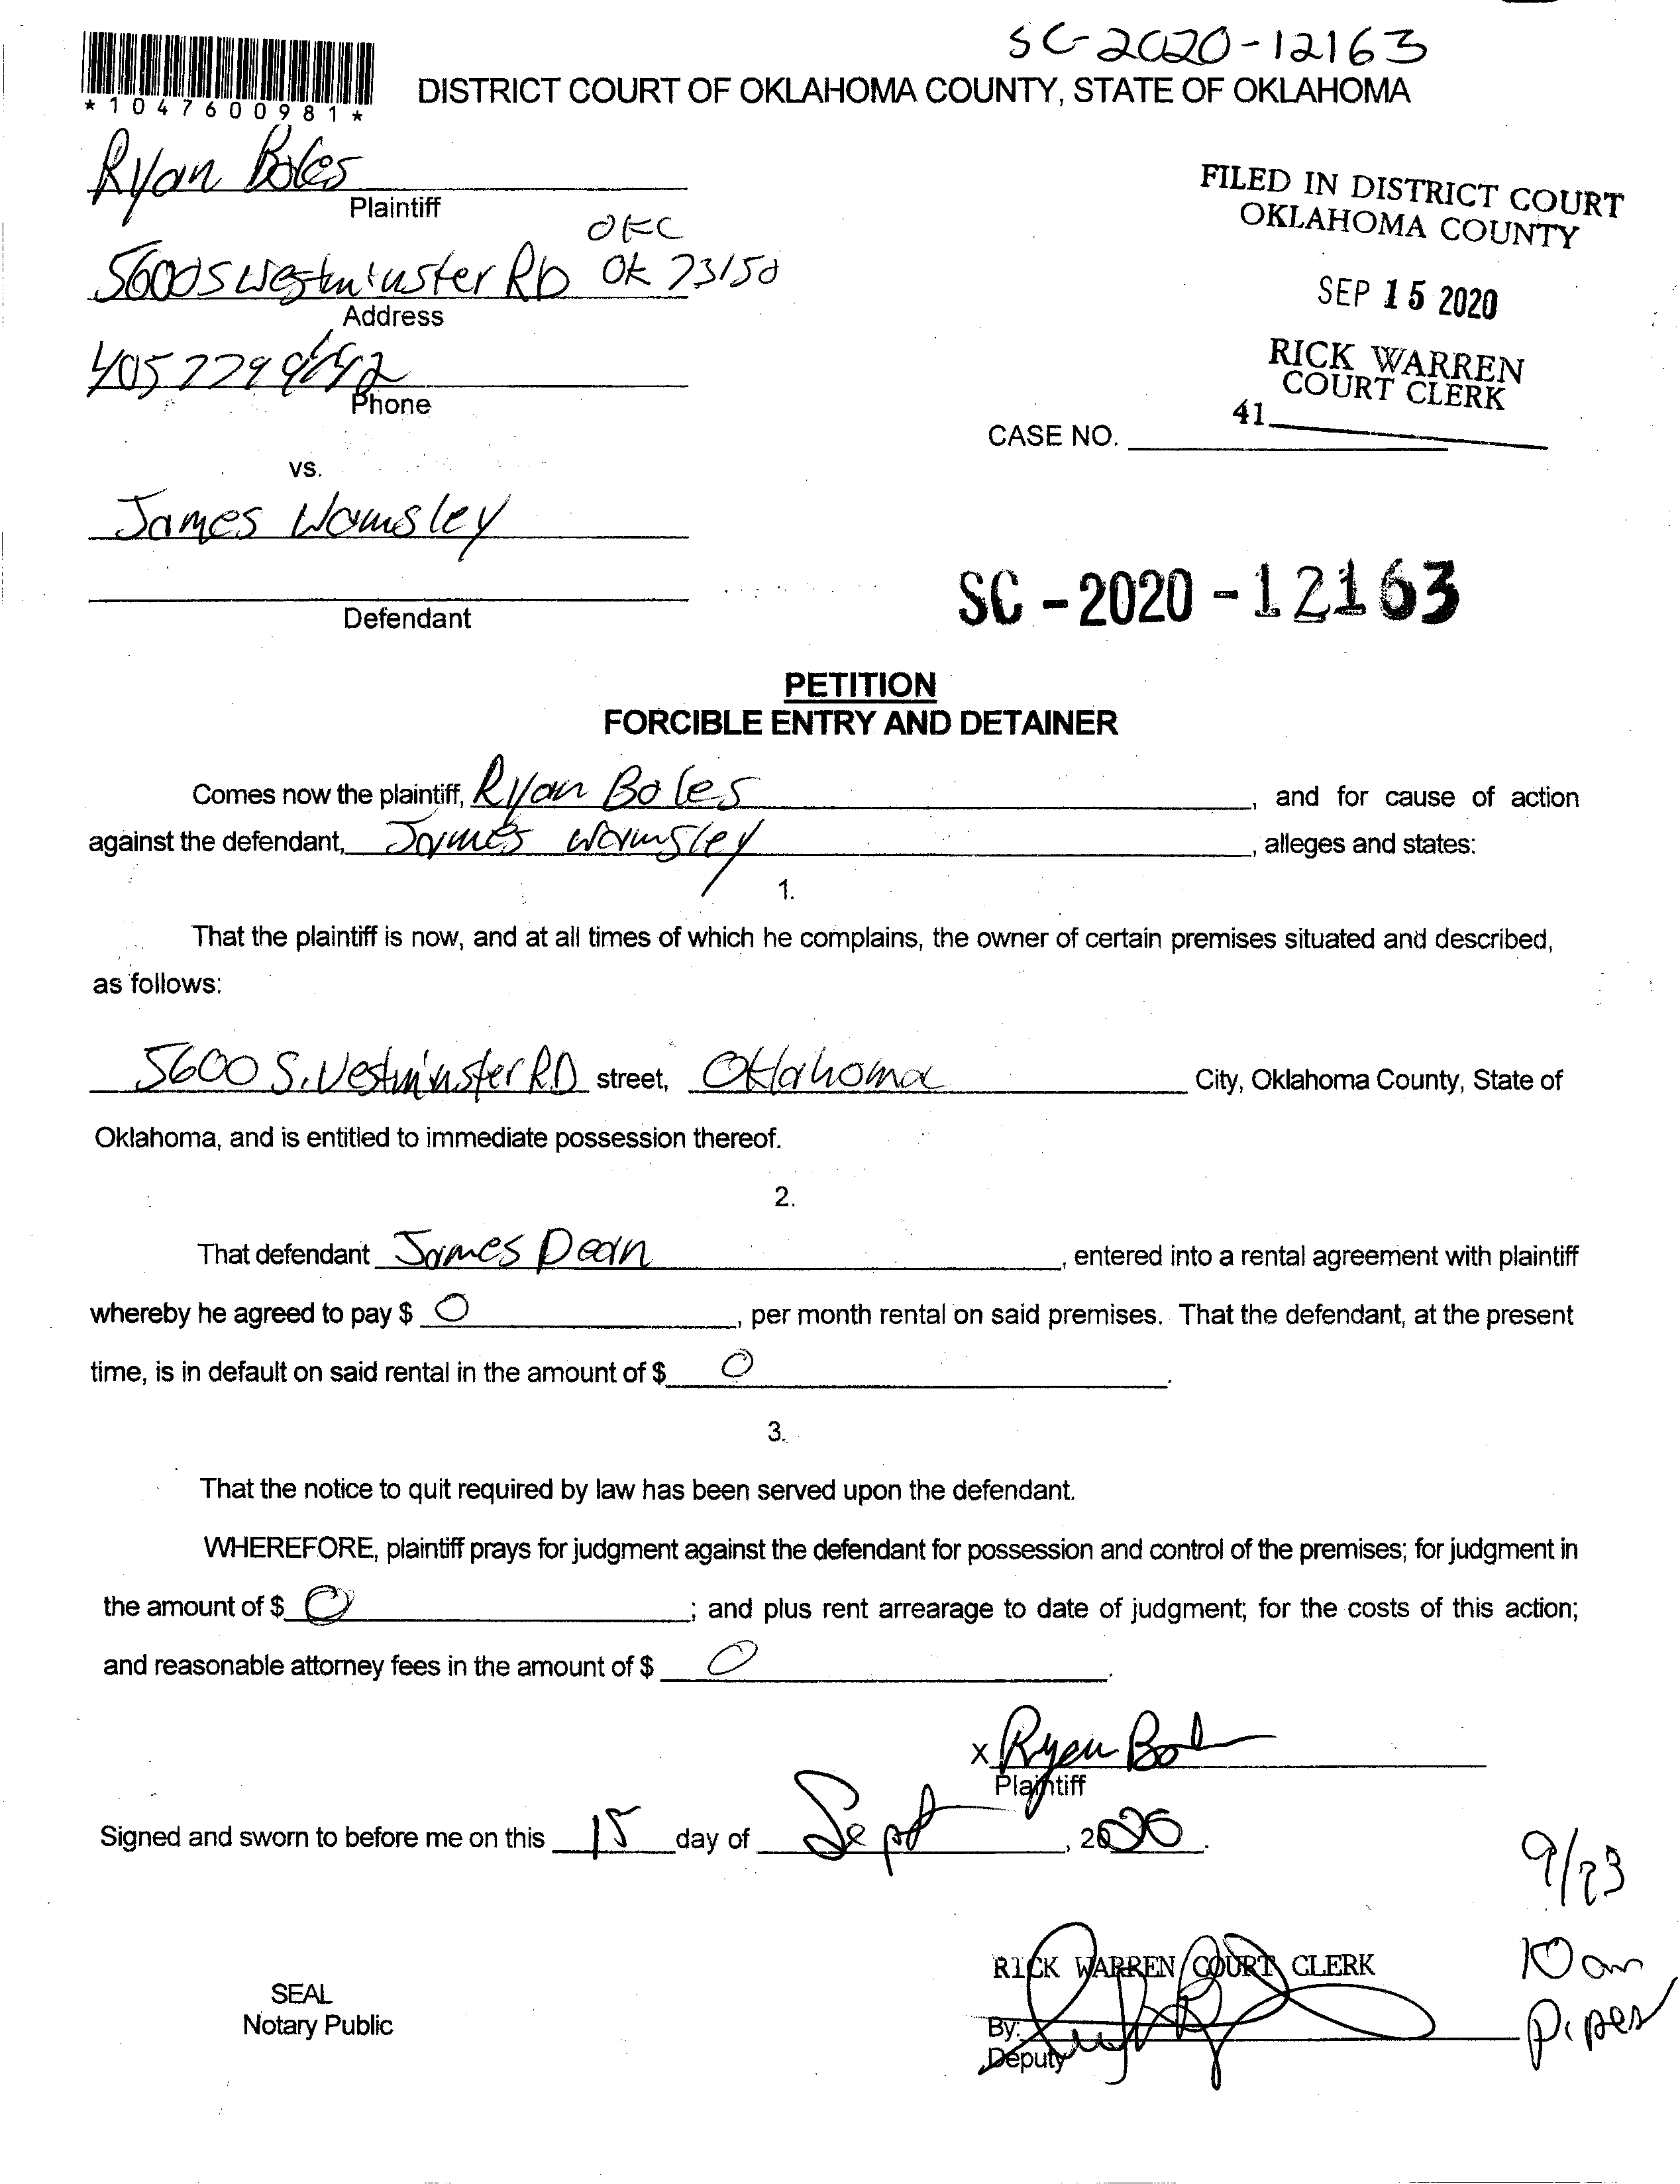 SC-2020-12163
*1047600981*
DISTRICT COURT OF OKLAHOMA COUNTY, STATE OF OKLAHOMA
Ryan Boles
Plaintiff
FILED IN DISTRICT COURT
OKLAHOMA COUNTY
OKC
5600 S Westminster RD OK 73150
Address
SEP 15 2020
405 229
Phone
RICK WARREN
COURT CLERK
41
CASE NO.
vs.
James Wamsley
Defendant
SC-2020-12163
PETITION
FORCIBLE ENTRY AND DETAINER
Comes now the plaintiff, Ryan Boles, and for cause of action
against the defendant, James Wamsley, alleges and states:
1.
That the plaintiff is now, and at all times of which he complains, the owner of certain premises situated and described,
as follows:
5600 S. Westminster RD street, Oklahoma City, Oklahoma County, State of
Oklahoma, and is entitled to immediate possession thereof.
2.
That defendant James Dean, entered into a rental agreement with plaintiff
whereby he agreed to pay $ 0, per month rental on said premises. That the defendant, at the present
time, is in default on said rental in the amount of $ 0.
3.
That the notice to quit required by law has been served upon the defendant.
WHEREFORE, plaintiff prays for judgment against the defendant for possession and control of the premises; for judgment in
the amount of $ 0; and plus rent arrearage to date of judgment; for the costs of this action;
and reasonable attorney fees in the amount of $ 0.
x Ryan Bol
Plaintiff
Signed and sworn to before me on this 15 day of Sept, 2020.
9/23
10 am
Piper
RICK WARREN COURT CLERK
SEAL
Notary Public
By:
Deputy